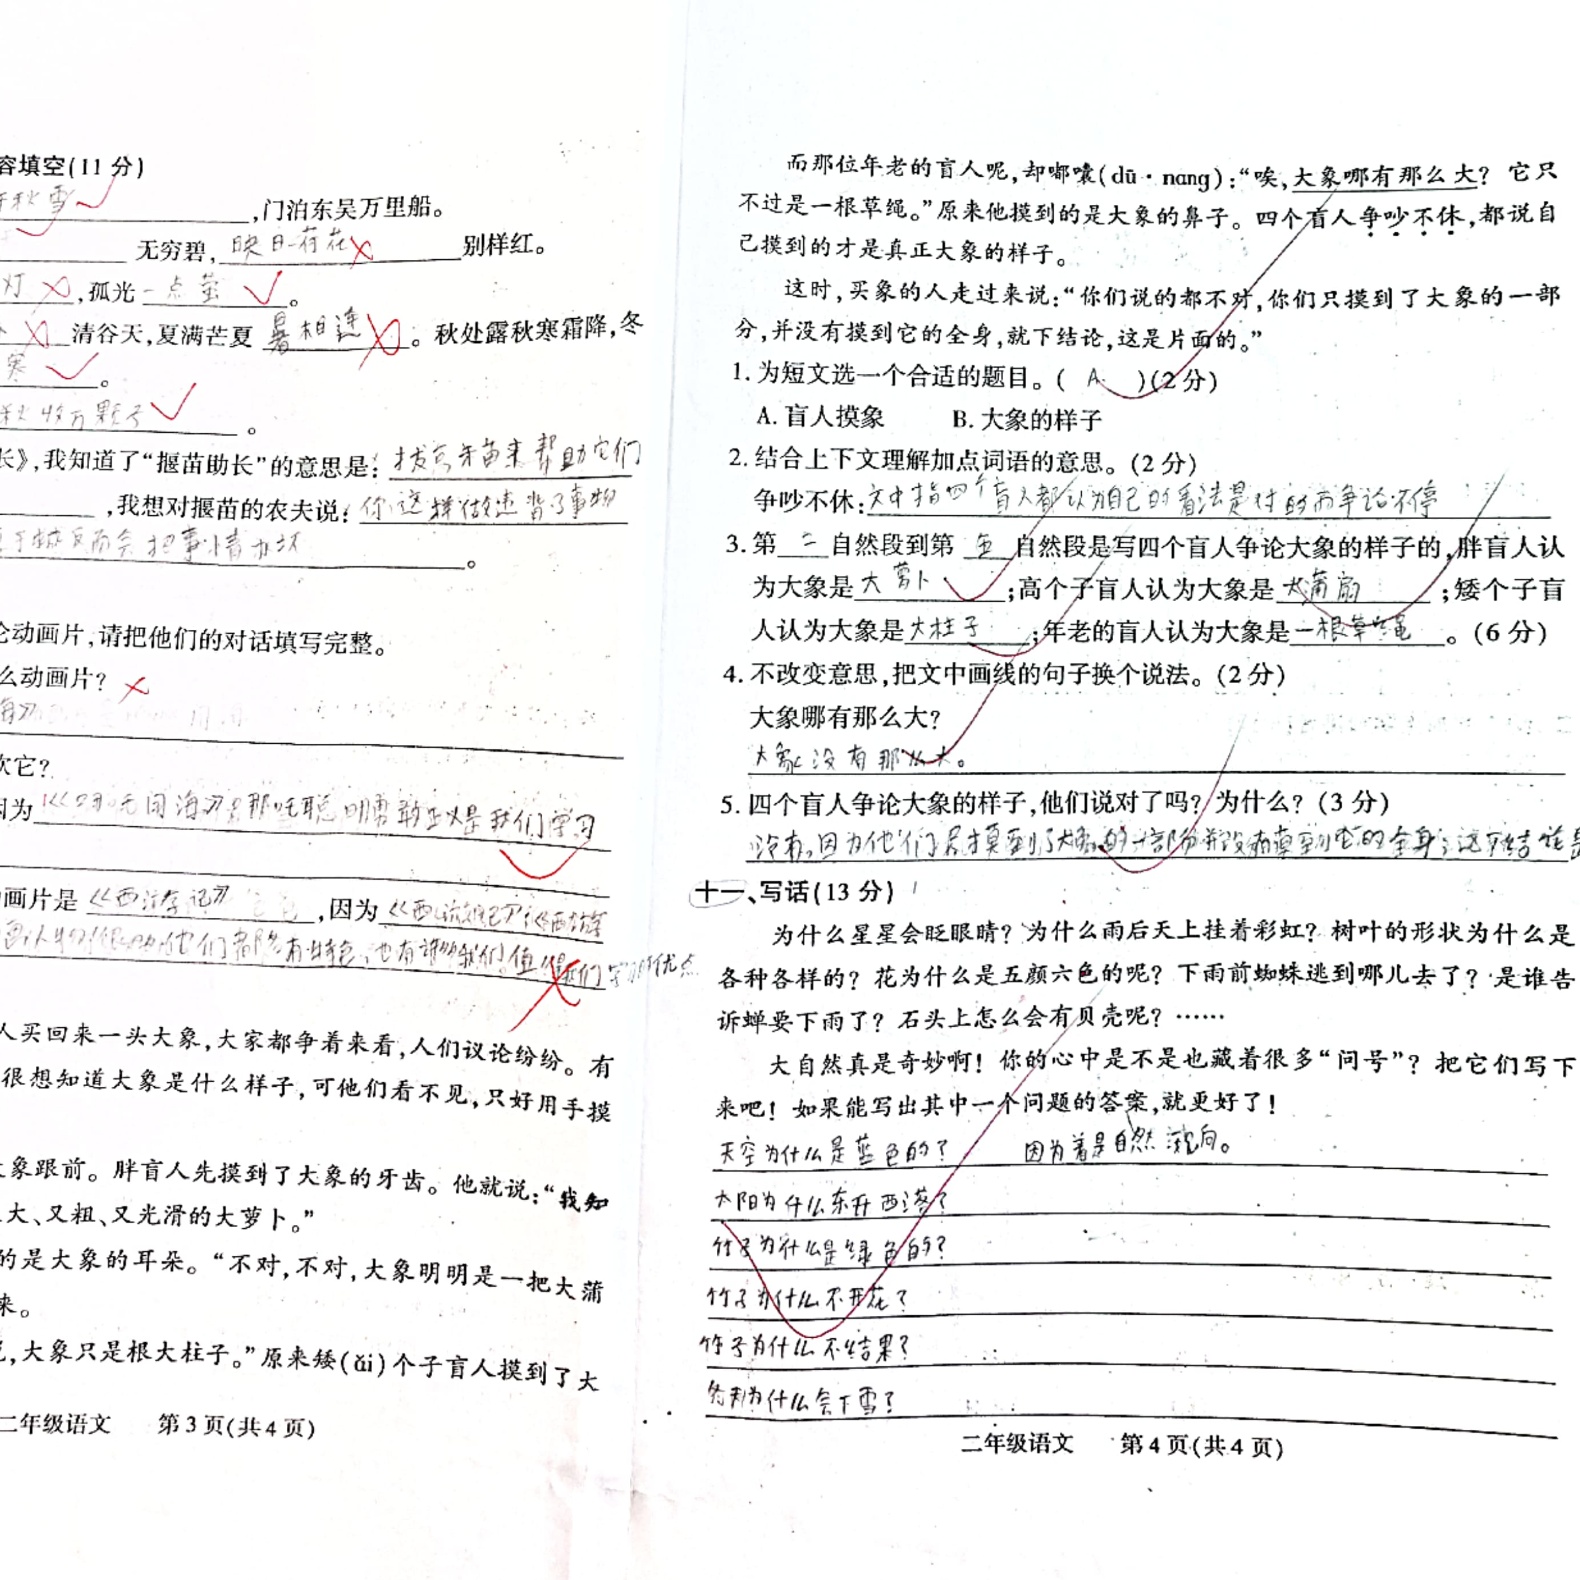 容填空(11分)
秋雪,门泊东吴万里船。
无穷碧,映日荷花别样红。
灯,孤光一点萤。
清谷天,夏满芒夏暑相连。秋处露秋寒霜降,冬
寒。
秋收万颗子。
长》,我知道了“揠苗助长”的意思是:拔高禾苗来帮助它们
,我想对揠苗的农夫说:你这样做违背了事物
反而会把事情办坏。
论动画片,请把他们的对话填写完整。
么动画片?
欢它?
因为闹海》里那吒聪明勇敢正义是我们学习
画片是《西游记》,因为
他们都各有特色也有让我们值得我们学习的优点
人买回来一头大象,大家都争着来看,人们议论纷纷。有
很想知道大象是什么样子,可他们看不见,只好用手摸
大象跟前。胖盲人先摸到了大象的牙齿。他就说:“我知
大、又粗、又光滑的大萝卜。”
的是大象的耳朵。“不对,不对,大象明明是一把大蒲
来。
说,大象只是根大柱子。”原来矮(ǎi)个子盲人摸到了大
二年级语文 第3页(共4页)
而那位年老的盲人呢,却嘟囔(dū·nang):“唉,大象哪有那么大?它只
不过是一根草绳。”原来他摸到的是大象的鼻子。四个盲人争吵不休,都说自
己摸到的才是真正大象的样子。
这时,买象的人走过来说:“你们说的都不对,你们只摸到了大象的一部
分,并没有摸到它的全身,就下结论,这是片面的。”
1.为短文选一个合适的题目。( A )(2分)
A.盲人摸象 B.大象的样子
2.结合上下文理解加点词语的意思。(2分)
争吵不休:文中指四个盲人都认为自己的看法是对的而争论不停
3.第二自然段到第五自然段是写四个盲人争论大象的样子的,胖盲人认
为大象是大萝卜;高个子盲人认为大象是大蒲扇;矮个子盲
人认为大象是大柱子;年老的盲人认为大象是一根草绳。(6分)
4.不改变意思,把文中画线的句子换个说法。(2分)
大象哪有那么大?
大象没有那么大。
5.四个盲人争论大象的样子,他们说对了吗?为什么?(3分)
没有。因为他们只摸到了大象的一部分并没有摸到它的全身,这下结论是
十一、写话(13分)
为什么星星会眨眼睛?为什么雨后天上挂着彩虹?树叶的形状为什么是
各种各样的?花为什么是五颜六色的呢?下雨前蜘蛛逃到哪儿去了?是谁告
诉蝉要下雨了?石头上怎么会有贝壳呢?……
大自然真是奇妙啊!你的心中是不是也藏着很多“问号”?把它们写下
来吧!如果能写出其中一个问题的答案,就更好了!
天空为什么是蓝色的? 因为着是自然
太阳为什么东升西落?
竹子为什么是绿色的?
竹子为什么不开花?
竹子为什么不结果?
冬天为什么会下雪?
二年级语文 第4页(共4页)